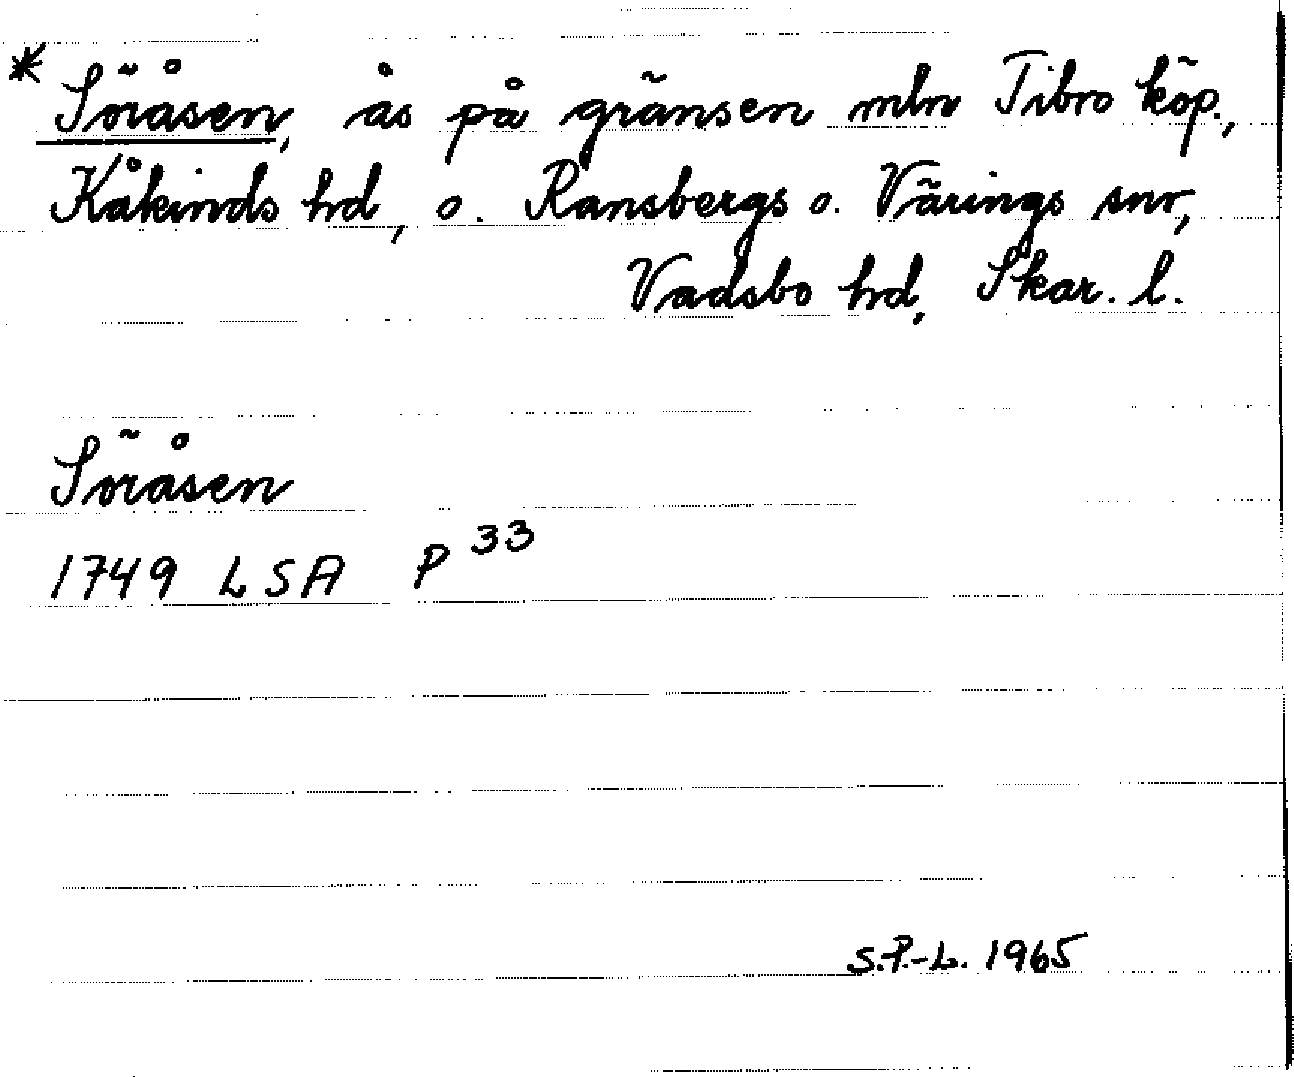 * Söråsen, ås på gränsen mln Tibro köp.,
Kåkinds hd, o. Ransbergs o. Värings snr,
Vadsbo hd, Skar. l.
Söråsen
1749 LSA P 33
S.P.-L. 1965